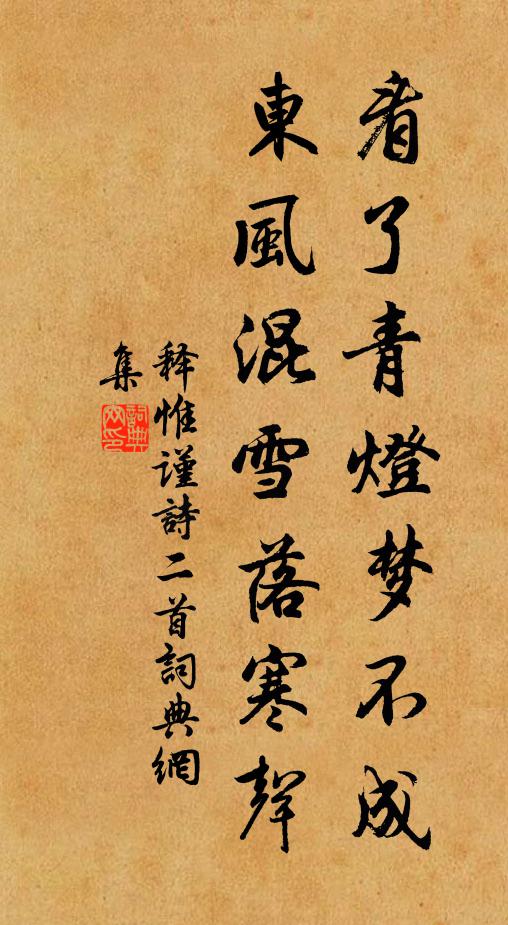 看了青燈梦不成
東風混雪落寒聲
释惟谨詩二首詞典網
集
詞典網印